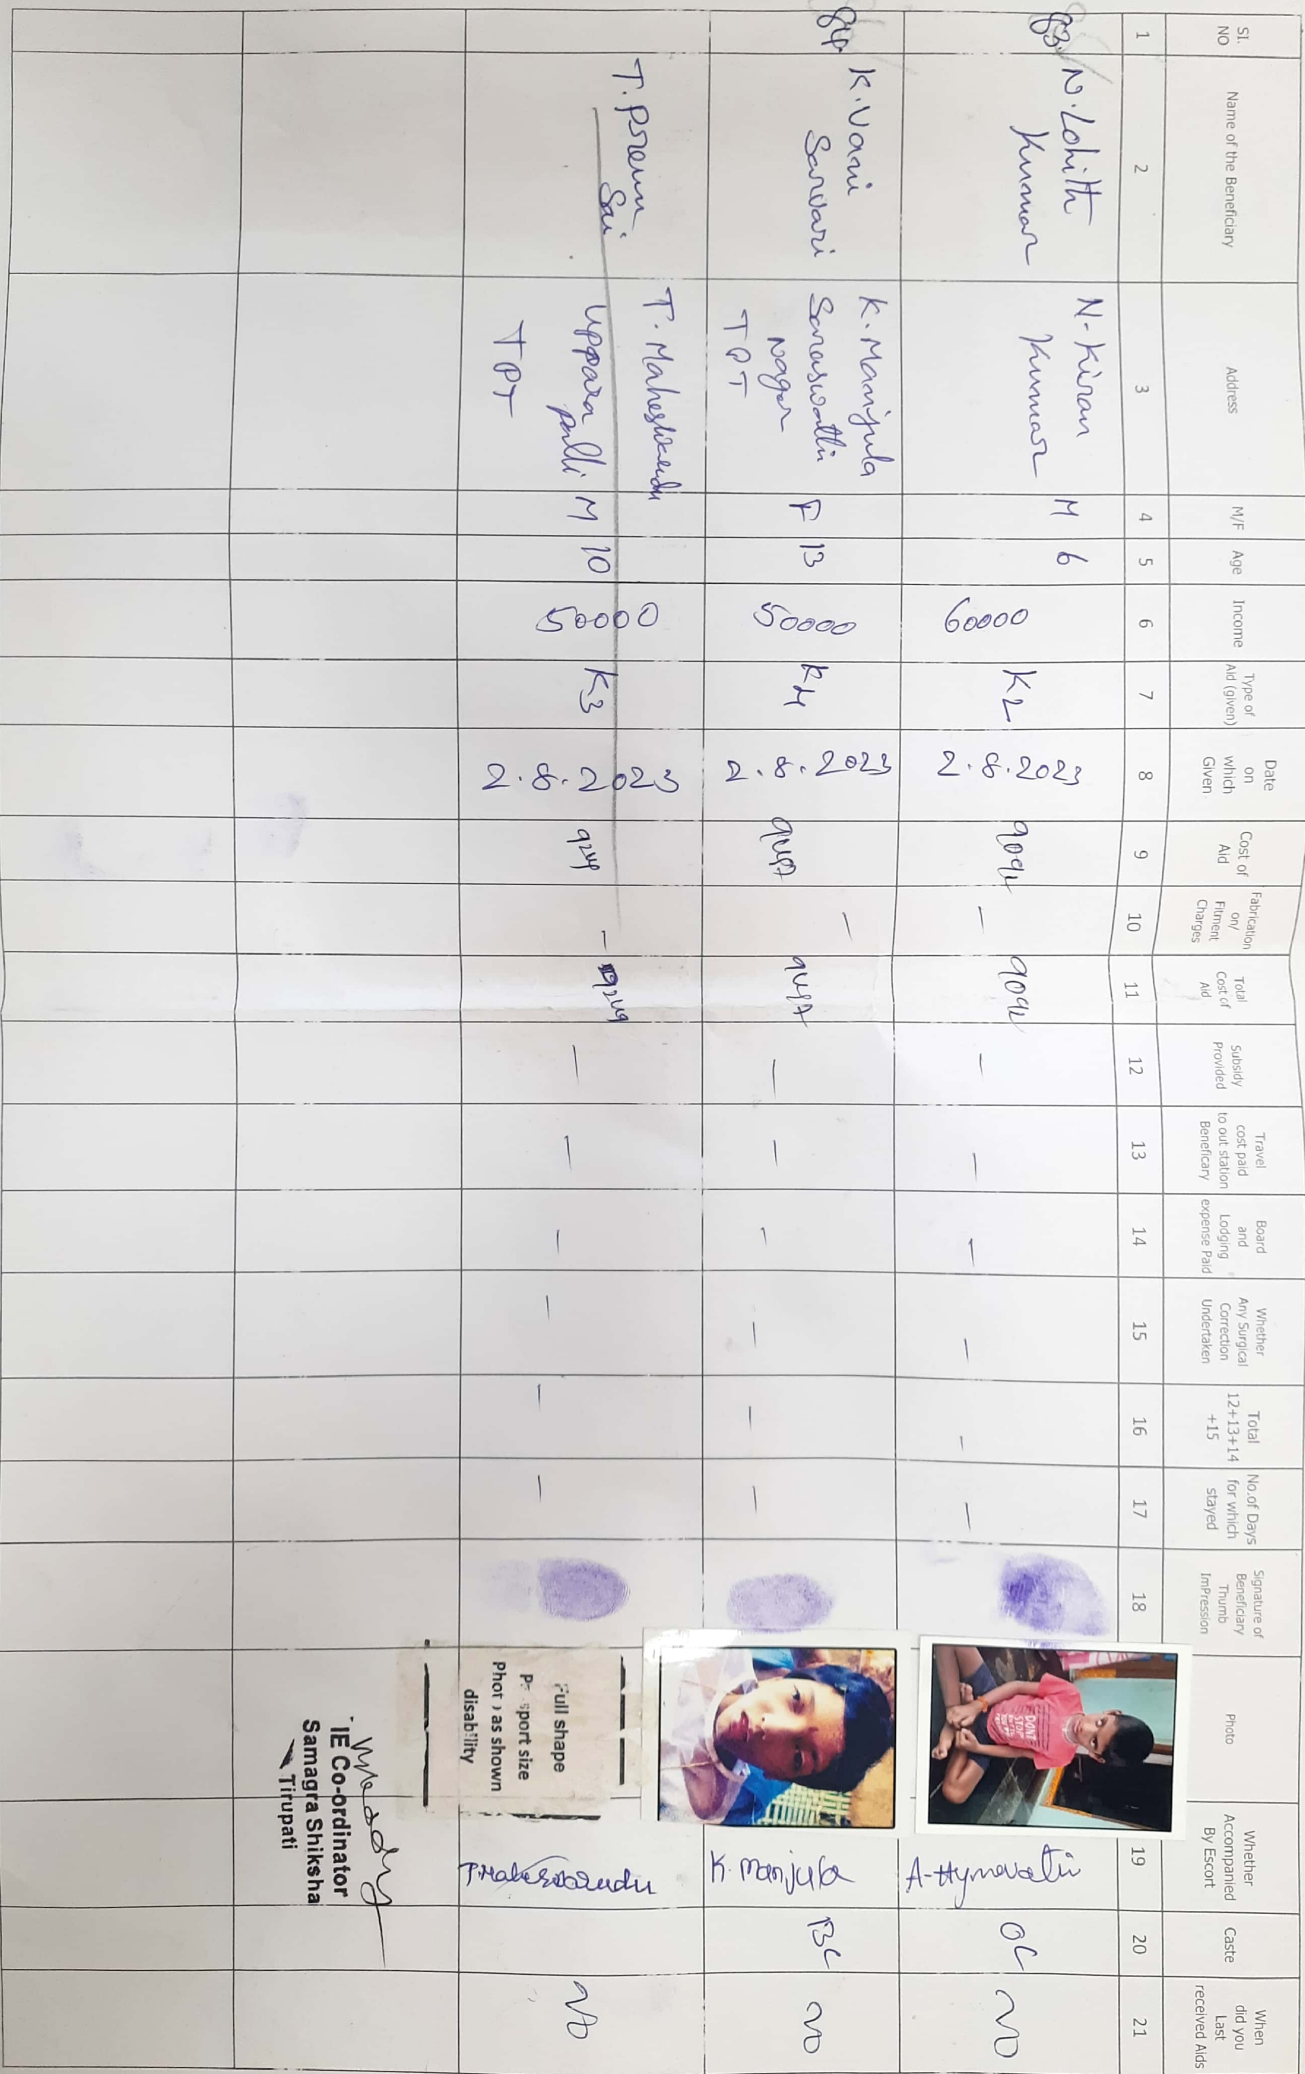 Sl.
NO
Name of the Beneficiary
Address
M/F
Age
Income
Type of
Aid (given)
Date
on
which
Given
Cost of
Aid
Fabrication
on/
Fitment
Charges
Total
Cost of
Aid
Subsidy
Provided
Travel
cost paid
to out station
Beneficary
Board
and
Lodging
expense Paid
Whether
Any Surgical
Correction
Undertaken
Total
12+13+14
+15
No.of Days
for which
stayed
Signature of
Beneficiary
Thumb
ImPression
Photo
Whether
Accompanied
By Escort
Caste
When
did you
Last
received Aids
1
2
3
4
5
6
7
8
9
10
11
12
13
14
15
16
17
18
19
20
21
83.
N. Lohith
Kumar
N. Kiran
Kumar
M
6
60000
K2
2.8.2023
—
—
—
—
—
—
—
DON'T
STOP
A-Hymavathi
OC
NO
84.
K. Vani
Sarvari
K. Manjula
Saraswathi
Nagar
TPT
F
13
50000
K4
2.8.2023
—
—
—
—
—
—
—
K. Manjula
BC
NO
T. Prem
Sai
T. Maheswarudu
Uppara
palli
TPT
M
10
50000
K3
2.8.2023
9249
—
9249
—
—
—
—
—
—
Full shape
sport size
as shown
disability
T.Maheswarudu
NO
IE Co-ordinator
Samagra Shiksha
Tirupati